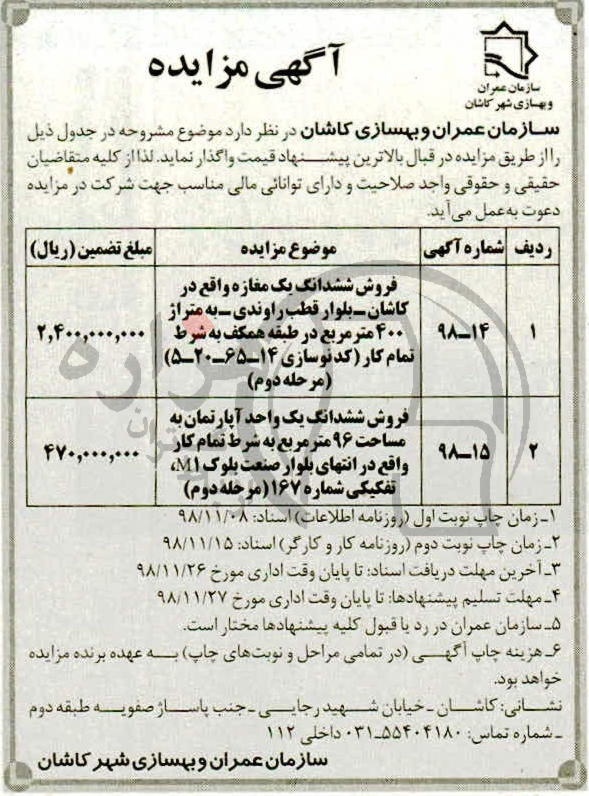 سازمان عمران
وبهسازی شهر کاشان
آگهی مزایده
سازمان عمران و بهسازی کاشان در نظر دارد موضوع مشروحه در جدول ذیل
را از طریق مزایده در قبال بالاترین پیشنهاد قیمت واگذار نماید. لذا از کلیه متقاضیان
حقیقی و حقوقی واجد صلاحیت و دارای توانائی مالی مناسب جهت شرکت در مزایده
دعوت به‌عمل می‌آید.
ردیف شماره آگهی موضوع مزایده مبلغ تضمین (ریال)
فروش ششدانگ یک مغازه واقع در
کاشان ـ بلوار قطب راوندی ـ به متراژ
۱ ۱۴ـ۹۸ ۴۰۰ مترمربع در طبقه همکف به شرط ۲,۴۰۰,۰۰۰,۰۰۰
تمام کار (کد نوسازی ۱۴ـ۶۵ـ۲۰ـ۵)
(مرحله دوم)
فروش ششدانگ یک واحد آپارتمان به
مساحت ۹۶ مترمربع به شرط تمام کار
۲ ۱۵ـ۹۸ واقع در انتهای بلوار صنعت بلوک M1، ۴۷۰,۰۰۰,۰۰۰
تفکیکی شماره ۱۶۷ (مرحله دوم)
۱ـ زمان چاپ نوبت اول (روزنامه اطلاعات) اسناد: ۹۸/۱۱/۰۸
۲ـ زمان چاپ نوبت دوم (روزنامه کار و کارگر) اسناد: ۹۸/۱۱/۱۵
۳ـ آخرین مهلت دریافت اسناد: تا پایان وقت اداری مورخ ۹۸/۱۱/۲۶
۴ـ مهلت تسلیم پیشنهادها: تا پایان وقت اداری مورخ ۹۸/۱۱/۲۷
۵ـ سازمان عمران در رد یا قبول کلیه پیشنهادها مختار است.
۶ـ هزینه چاپ آگهی (در تمامی مراحل و نوبت‌های چاپ) به عهده برنده مزایده
خواهد بود.
نشانی: کاشان ـ خیابان شهید رجایی ـ جنب پاساژ صفویه طبقه دوم
ـ شماره تماس: ۵۵۴۰۴۱۸۰ـ۰۳۱ داخلی ۱۱۲
سازمان عمران و بهسازی شهر کاشان